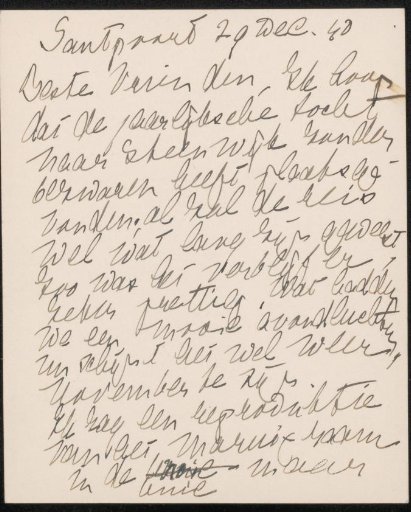 Santpoort 29 Dec. 40
Beste Vrienden, Ik hoop
dat de jaarlijksche tocht
naar Steenwijk zonder
bezwaren heeft plaatsge-
vonden. al zal de reis
wel wat lang zijn geweest
zoo was het verblijf er
zeker prettig. Wat hadden
we een mooie avondlucht
nu schijnt het wel weer
November te zijn
Ik zag een reproduktie
van het Marnix raam
in de Unie maar